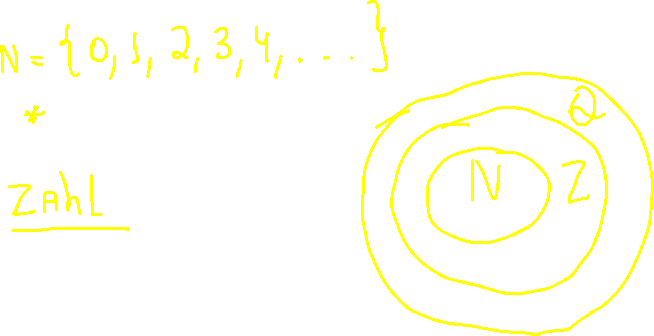 N = {0, 1, 2, 3, 4, . . . }
*
ZAhL
Q
N Z